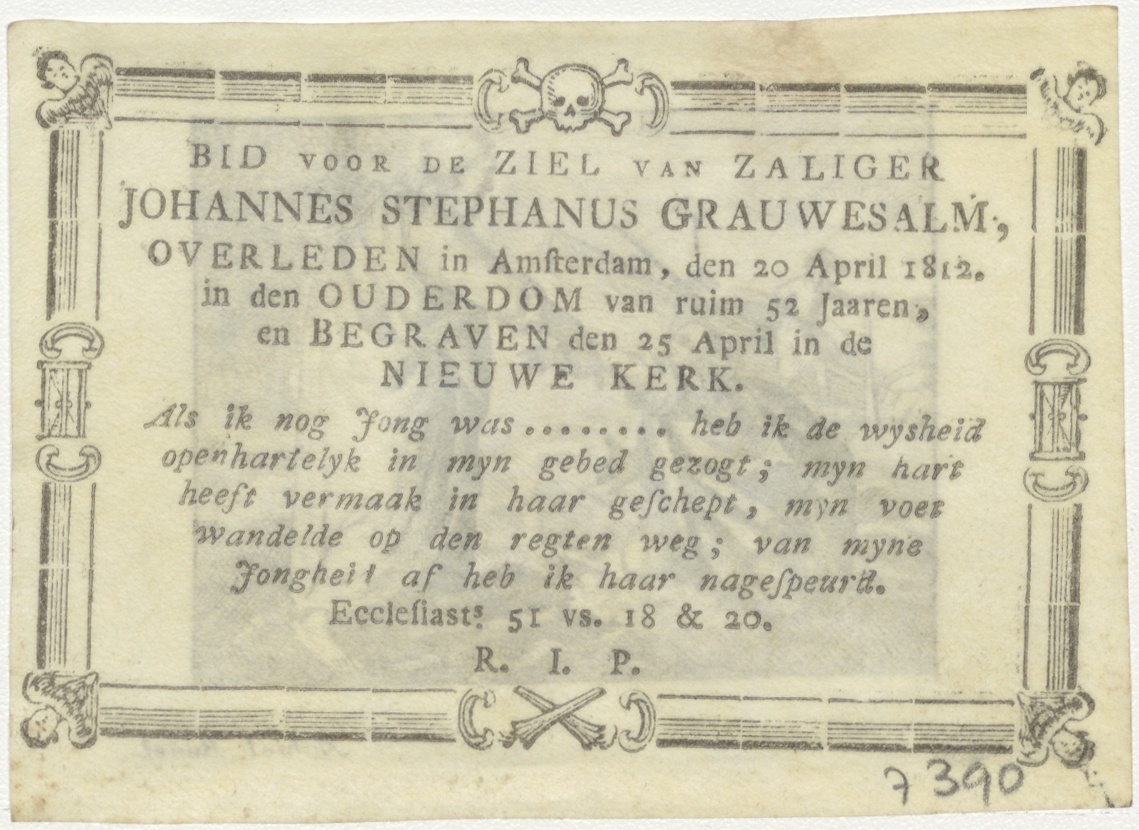 BID VOOR DE ZIEL VAN ZALIGER
JOHANNES STEPHANUS GRAUWESALM,
OVERLEDEN in Amſterdam, den 20 April 1812.
in den OUDERDOM van ruim 52 Jaaren,
en BEGRAVEN den 25 April in de
NIEUWE KERK.
Als ik nog Jong was ........ heb ik de wysheid
openhartelyk in myn gebed gezogt; myn hart
heeft vermaak in haar geſchept, myn voet
wandelde op den regten weg; van myne
Jongheit af heb ik haar nageſpeurd.
Eccleſiasts. 51 vs. 18 & 20.
R. I. P.
7390